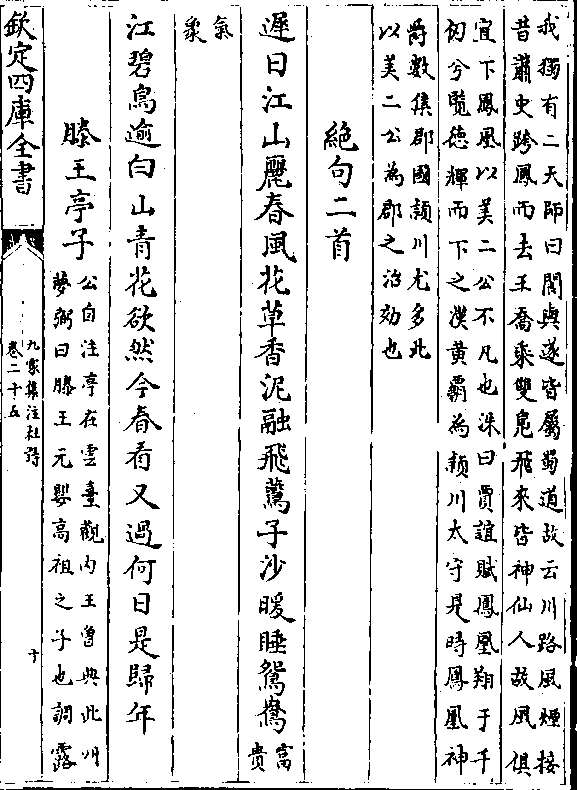 我獨有二天師曰閬與遂皆屬蜀道故云川路風煙接
昔蕭史跨鳳而去王喬乘雙鳬飛來皆神仙人故風俱
宜下鳳凰以美二公不凡也洙曰賈誼賦鳳凰翔于千
仞兮覽徳輝而下之漢黄霸為潁川太守是時鳳凰神
爵數集郡國潁川尤多此
以美二公為郡之治効也
絶句二首
遲日江山麗春風花草香泥融飛鷰子沙暖睡鴛鴦富貴
氣象
江碧鳥逾白山青花欲然今春看又過何日是歸年
滕王亭子
公自注亭在雲臺觀内王曾典此州
夢弼曰滕王元嬰高祖之子也調露
欽定四庫全書
九家集注杜詩
卷二十五
十